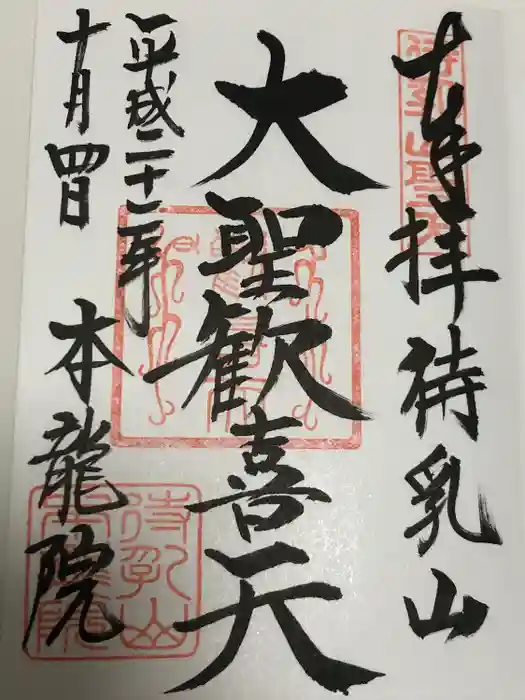 奉拝 待乳山
大聖歓喜天
平成二十二年
十月四日 本龍院
待乳山聖天
待乳山本龍院